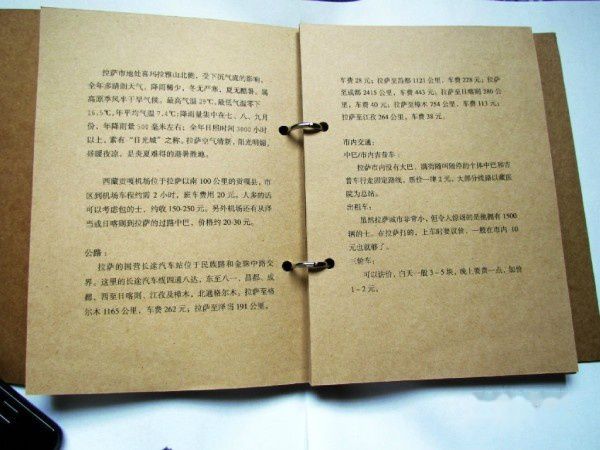 拉萨市地处喜玛拉雅山北侧，受下沉气流的影响，
全年多晴朗天气，降雨稀少，冬无严寒，夏无酷暑。属
高原季风半干旱气候。最高气温29℃，最低气温零下
16.5℃，年平均气温7.4℃；降雨量集中在七、八、九月
份，年降雨量500毫米左右；全年日照时间3000小时
以上，素有“日光城”之称。拉萨空气清新，阳光明媚，
昼暖夜凉，是炎夏难得的避暑胜地。
西藏贡嘎机场位于拉萨以南100公里的贡嘎县，市
区到机场车程约需2小时，班车费用20元，人多的话
可以考虑包的士，约收150-250元。另外机场还有从泽
当或日喀则到拉萨的过路中巴，价格约20-30元。
公路：
拉萨的国营长途汽车站位于民族路和金珠中路交
界。这里的长途汽车线四通八达，东至八一、昌都、成
都，西至日喀则、江孜及樟木，北通格尔木。拉萨至格
尔木1165公里，车费262元；拉萨至泽当191公里，
车费28元；拉萨至昌都1121公里，车费228元；拉萨
至成都2415公里，车费443元，拉萨至日喀则280公
里，车费40元；拉萨至樟木754公里，车费113元；
拉萨至江孜264公里，车费38元。
市内交通：
中巴/市内吉普车：
拉萨市内没有大巴。满街随叫随停的个体中巴和吉
普车行走固定路线，票价一律2元，大部分线路以藏医
院为总站。
出租车：
虽然拉萨城市非常小，但令人惊讶的是他拥有1500
辆的士。在拉萨打的，上车时要议价，一般在市内10
元也就够了。
三轮车：
可以访价，白天一般3-5块，晚上要贵一点，加价
1-2元。